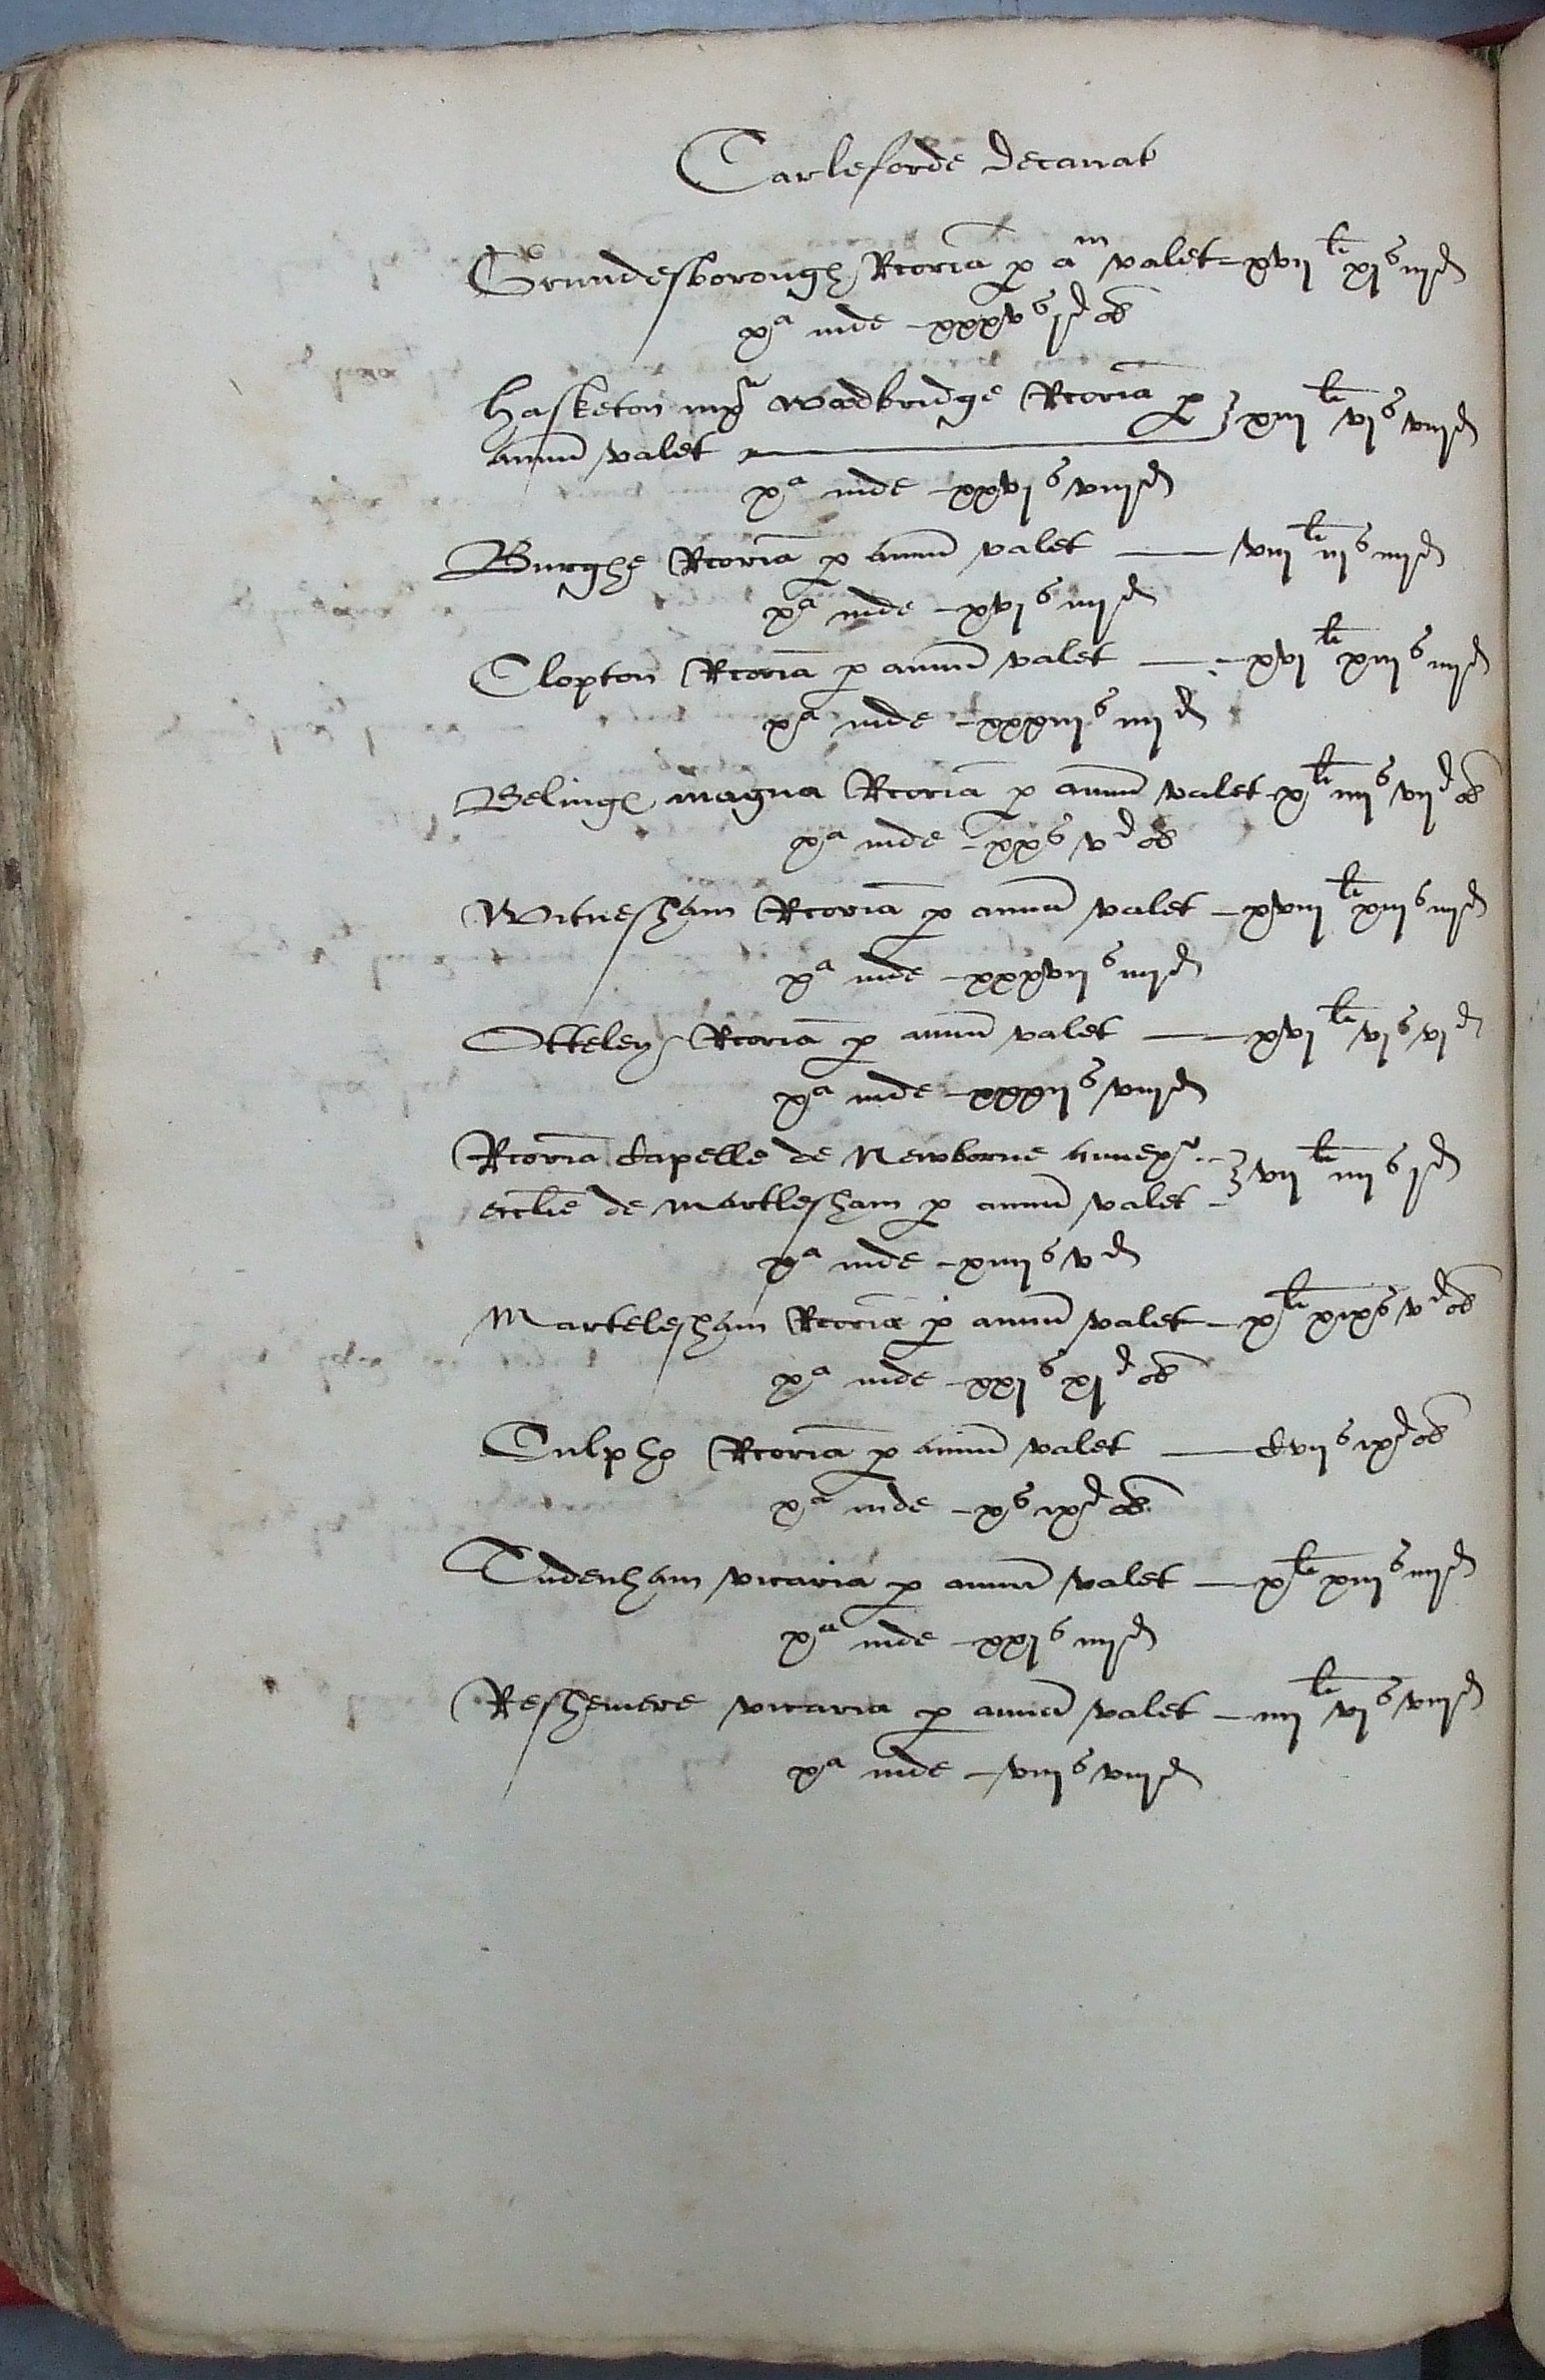 Carleforde decanat
Grundesborough Rcoria p am valet – xvij li xj s iij d
xa inde – xxxv s j d ob
Hasketon iuxa Woodbridge Rcoria p
annu valet — xiij li vj s viij d
xa inde – xxvj s viij d
Burghe Rcoria p annu valet — viij li iij s iiij d
xa inde – xvj s iiij d
Clopton Rcoria p annu valet — xvj li xiij s iiij d
xa inde – xxxiij s iiij d
Belinge magna Rcoria p annu valet – x li iiij s vij d ob
xa inde – xx s v d ob
Witnesham Rcoria p annu valet – xviij li xiij s iiij d
xa inde – xxxvij s iiij d
Otteley Rcoria p annu valet — xvj li vj s vj d
xa inde – xxxij s viij d
Rcoria Capelle de Newborne annex
ecclie de Martlesham p annu valet – vij li iiij s j d
xa inde – xiiij s v d
Martelesham Rcoria p annu valet – x li xix s v d ob
xa inde – xxj s xj d ob
Culpho Rcoria p annu valet — Cvij s ix d ob
xa inde – x s ix d ob
Tudenham vicaria p annu valet — x li xiij s iiij d
xa inde – xxj s iiij d
Reshemere vicaria p annu valet – iiij li vj s viij d
xa inde – viij s viij d